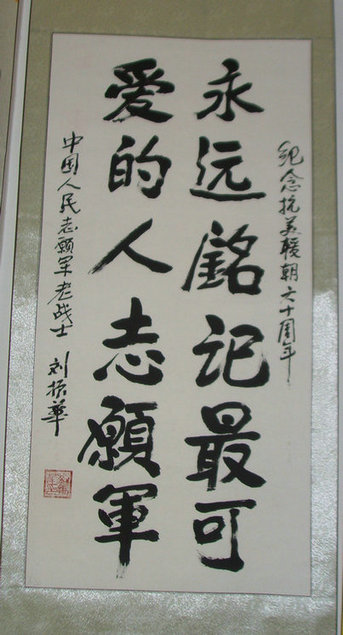 纪念抗美援朝六十周年
永远銘记最可
爱的人志願軍
中国人民志願军老战士 刘振华